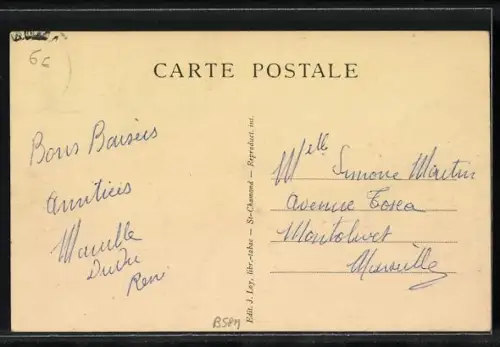 6c
CARTE POSTALE
Bons Baisers
Amitiés
Dudu
René
Edit. J. Ley, libr.-tabac — St-Chamond — Reproduct. int.
Melle Simone Martin
Avenue Tosca
Montolivet
Marseille
B58M